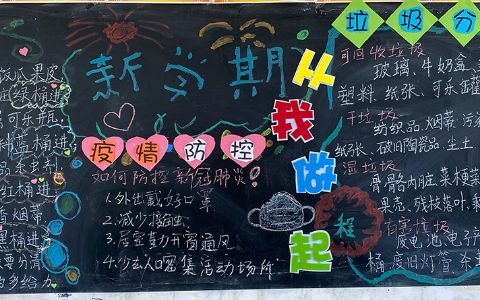 瓜果皮
绿桶进
可乐开瓶
盖桶进
红桶进
烟蒂
黑桶进
要分清
新学期
疫情防控
如何防控新冠肺炎
1.外出戴好口罩
2.减少接触
3.居室勤开窗通风
4.少去人口密集活动场所
从我做起
垃圾分
可回收垃圾
玻璃、牛奶盒、
塑料、纸张、可乐罐
干垃圾
纺织品、烟蒂、污
纸张、破旧陶瓷品、尘土
湿垃圾
骨骼内脏、菜梗菜
果壳、残枝落叶、剩
程
有害垃圾
废电池、电子产
桶、废旧灯管、杀